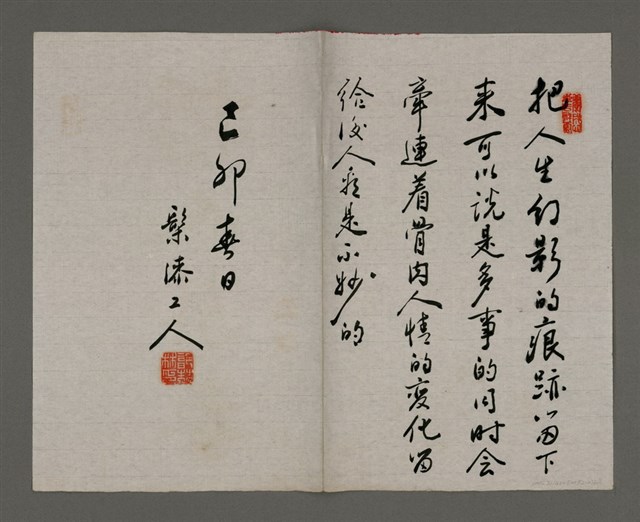 把人生幻影的痕跡留下
来可以说是多事的同时会
牵連着骨肉人情的变化留
给後人看是不妙的
己卯春日
髹漆工人